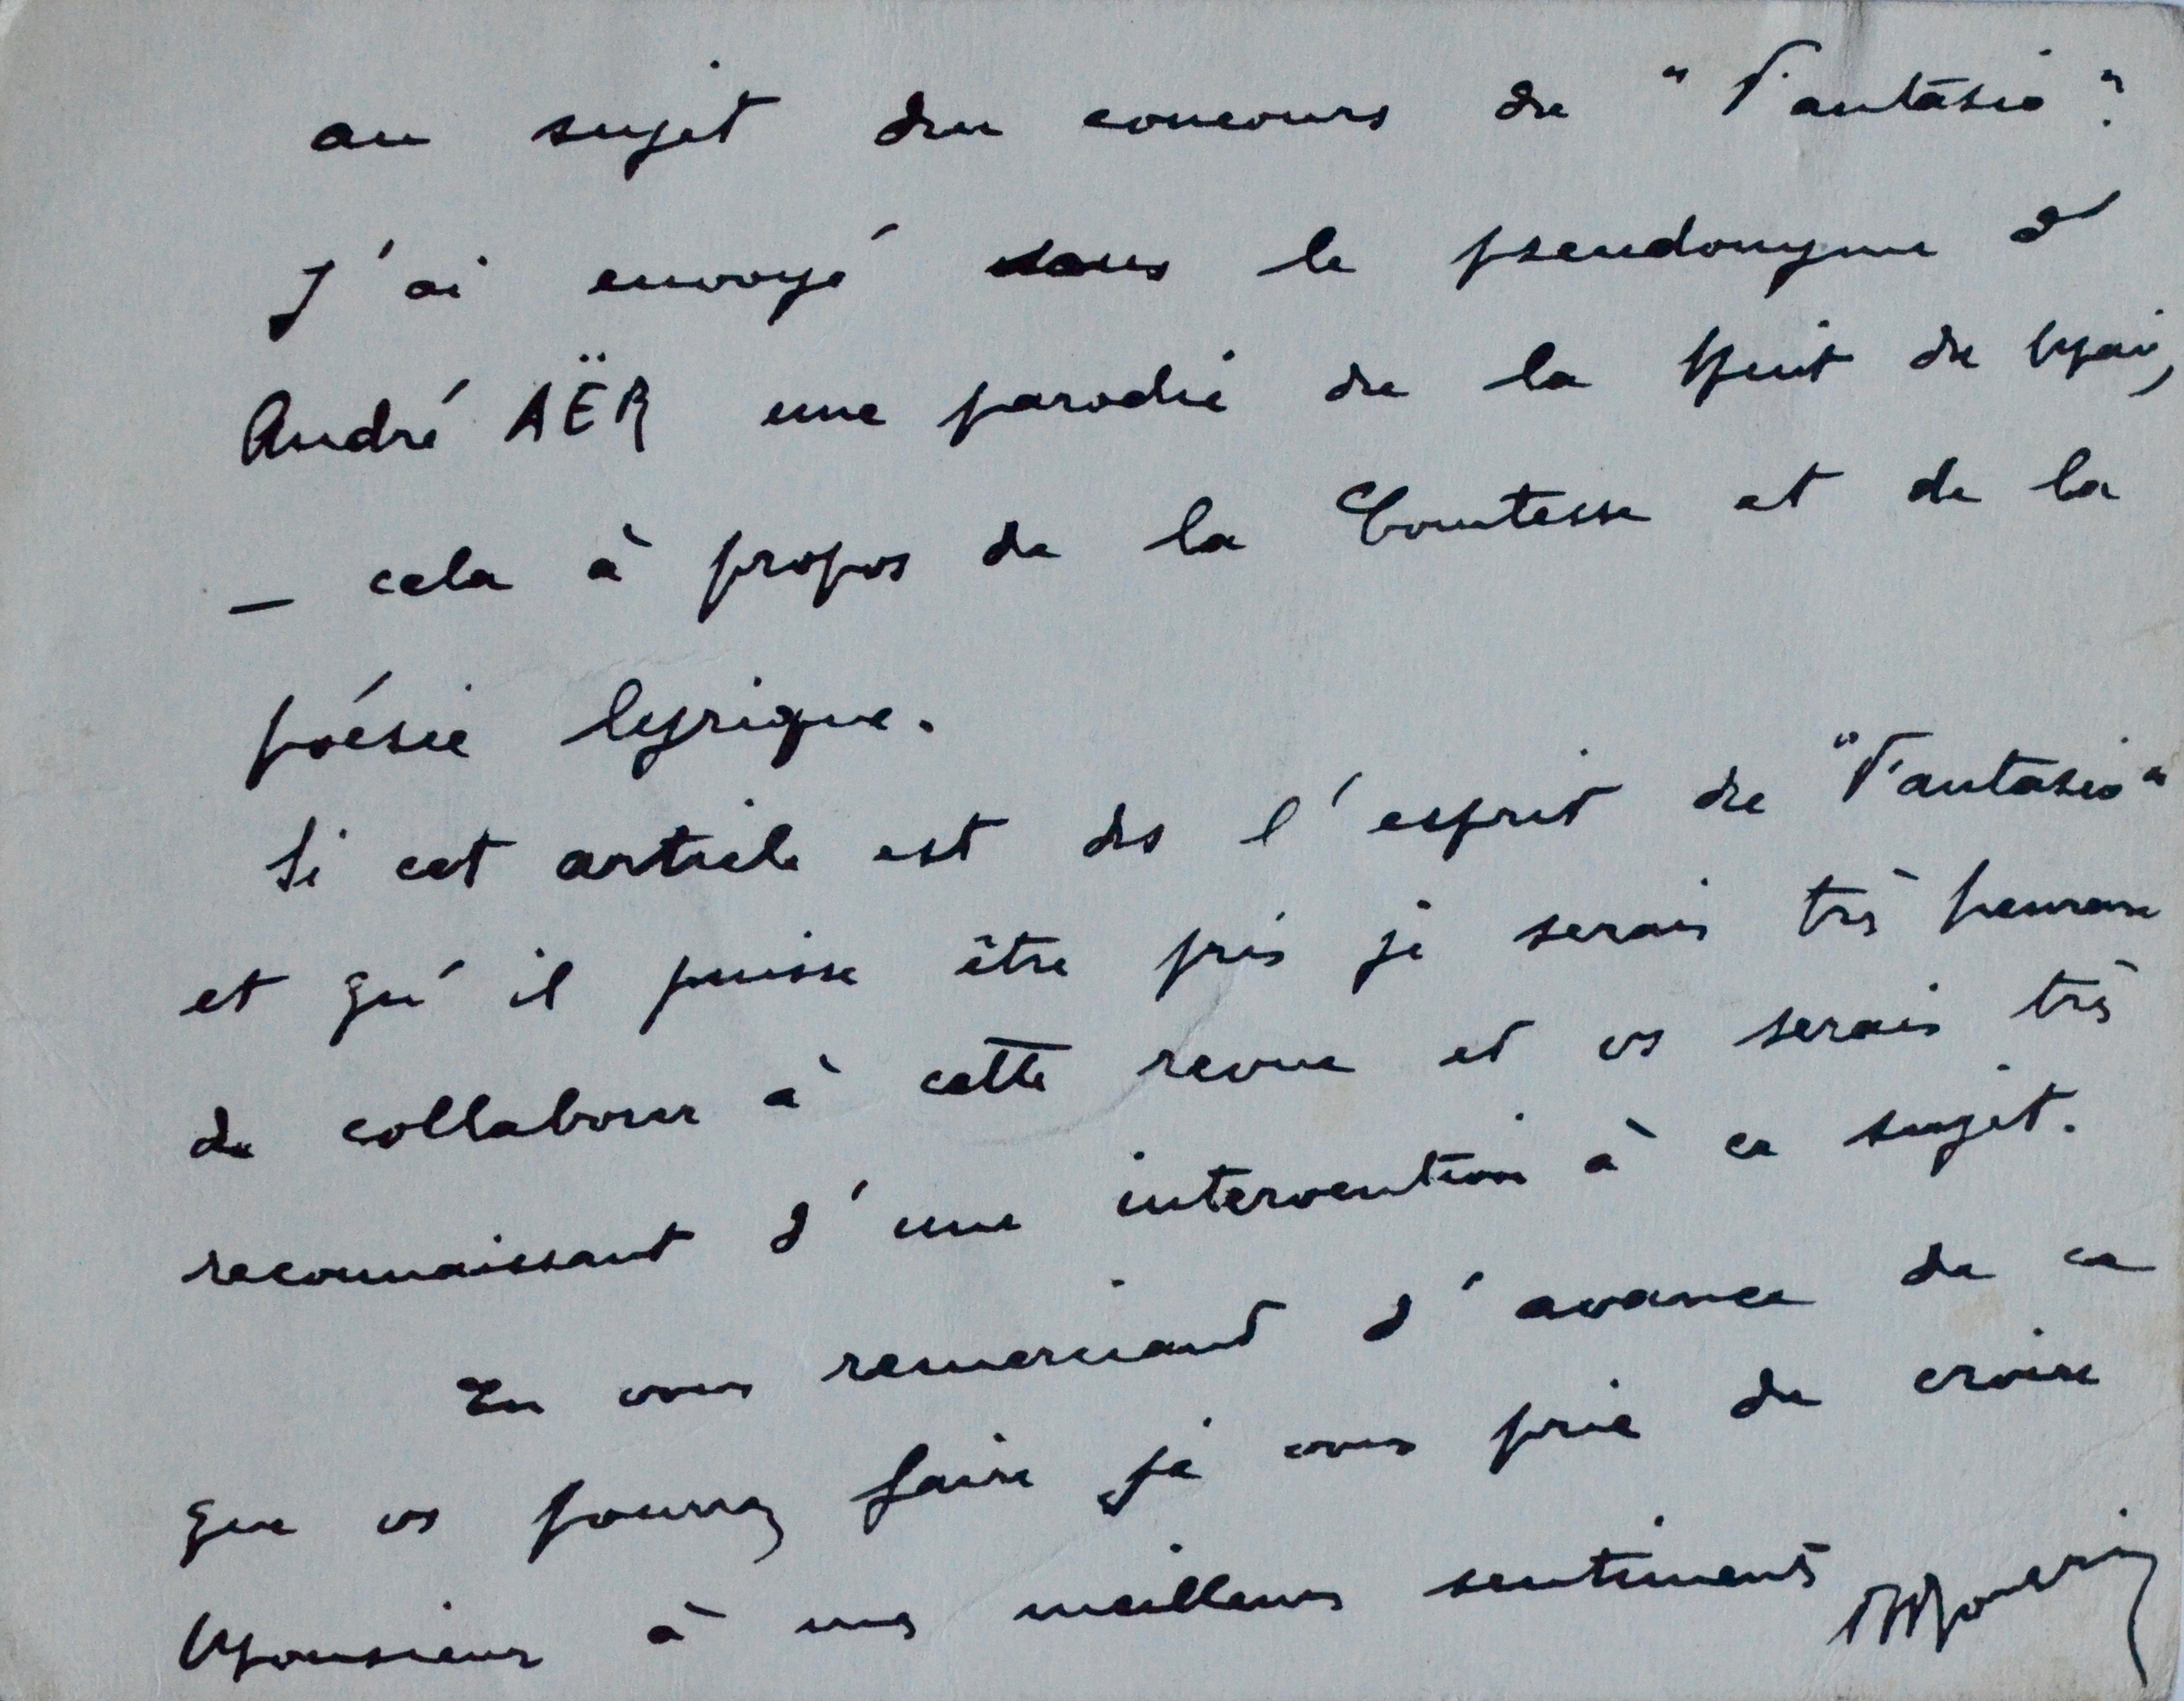 au sujet du concours de "Fantasio".
J'ai envoyé sous le pseudonyme d'
André AËR une parodie de la Nuit de Mai,
— cela à propos de la Comtesse et de la
poésie lyrique.
Si cet article est ds l'esprit de "Fantasio"
et qu'il puisse être pris je serais très heureux
de collaborer à cette revue et vs serais très
reconnaissant d'une intervention à ce sujet.
En vous remerciant d'avance de ce
que vs pourrez faire je vous prie de croire
Monsieur à mes meilleurs sentiments